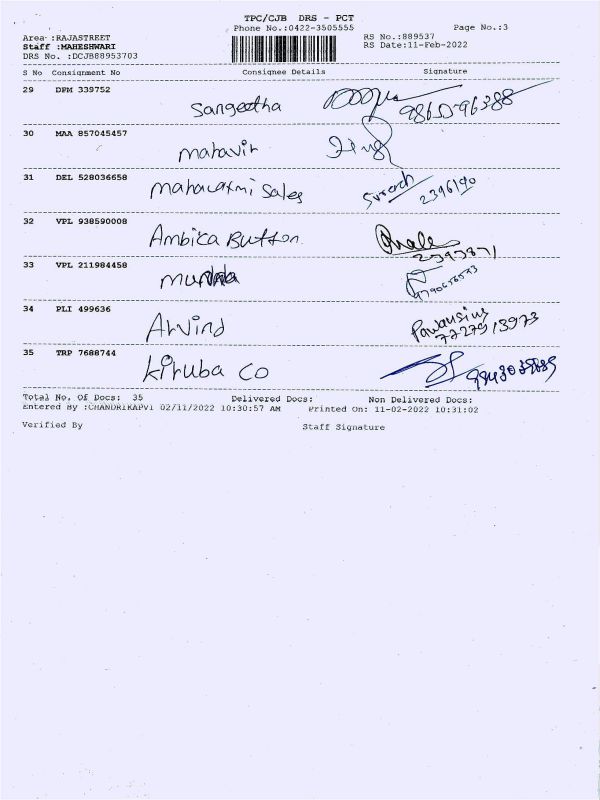 TPC/CJB DRS - PCT
Phone No.:0422-3505555 Page No.:3
Area :RAJASTREET RS No.:889537
Staff :MAHESHWARI RS Date:11-Feb-2022
DRS No. :DCJB88953703
S No Consignment No Consignee Details Signature
29 DPM 339752 Sangeetha
30 MAA 857045457 Mahavir
31 DEL 528036658 Mahalaxmi Sales Suresh 2396190
32 VPL 938590008 Ambica Button 2393871
33 VPL 211984458
34 PLI 499636 Arvind
35 TRP 7688744 Kiruba Co
Total No. Of Docs: 35 Delivered Docs: Non Delivered Docs:
Entered By :CHANDRIKAPV1 02/11/2022 10:30:57 AM Printed On: 11-02-2022 10:31:02
Verified By Staff Signature